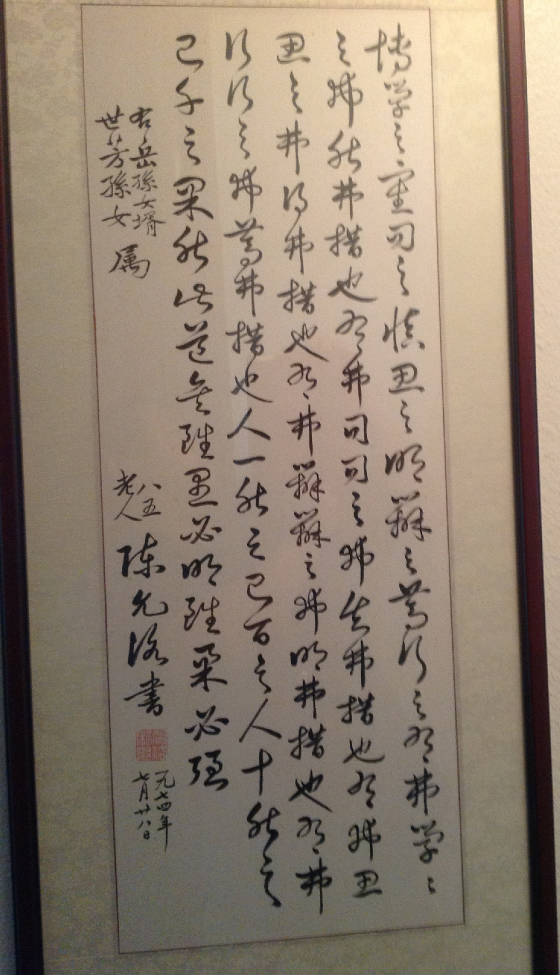 博學之審問之慎思之明辯之篤行之有弗學〻
之弗能弗措也有弗問問之弗知弗措也有弗思
思之弗得弗措也有弗辯辯之弗明弗措也有弗
行行之弗篤弗措也人一能之己百之人十能之
己千之果能此道矣雖愚必明雖柔必强
岳孫女婿
世芳孫女 属
八五
老人
陳允洛書
一九七四年
七月廿八日